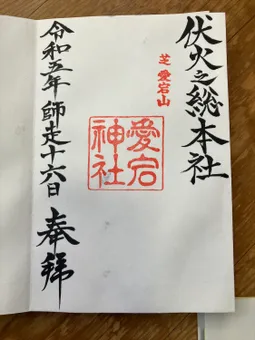 伏火之総本社
芝 愛宕山
愛宕
神社
奉拝
令和五年師走十六日